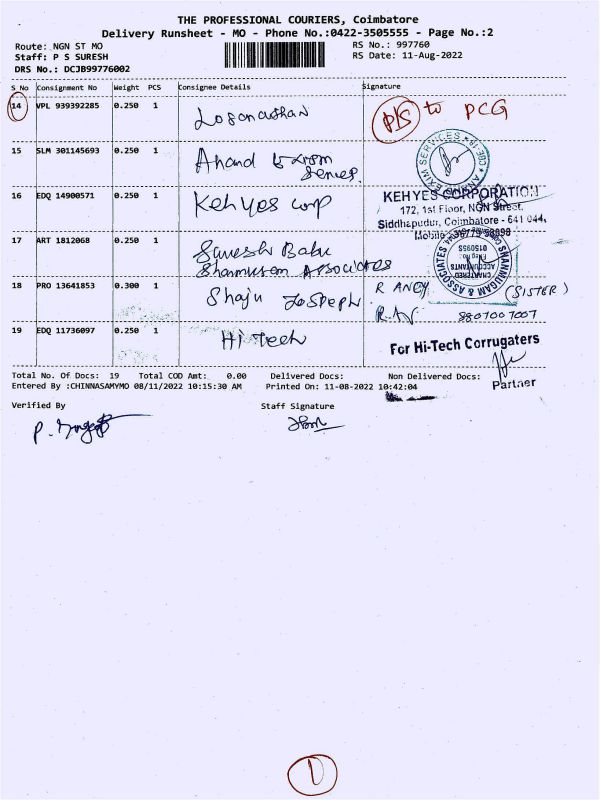 THE PROFESSIONAL COURIERS, Coimbatore
Delivery Runsheet - MO - Phone No.:0422-3505555 - Page No.:2
Route: NGN ST MO
RS No.: 997760
Staff: P S SURESH
RS Date: 11-Aug-2022
DRS No.: DCJB99776002
S No Consignment No Weight PCS Consignee Details Signature
14 VPL 939392285 0.250 1 Loganathan P/S to PCG
15 SLM 301145693 0.250 1 Anand Exism
Services
EXIM SERVICES CBE-18
16 EDQ 14900571 0.250 1 Kehyes Corp
KEHYES CORPORATION
172, 1st Floor, NGN Street,
Siddhapudur, Coimbatore - 641 044.
17 ART 1812068 0.250 1 Suresh Babu
Shanmugam Associates
SHANMUGAM & ASSOCIATES CHARTERED ACCOUNTANTS
18 PRO 13641853 0.300 1 Shaju Joseph R ANCY (SISTER)
8807007007
19 EDQ 11736097 0.250 1 Hi Tech
For Hi-Tech Corrugaters
Partner
Total No. Of Docs: 19 Total COD Amt: 0.00 Delivered Docs: Non Delivered Docs:
Entered By :CHINNASAMYMO 08/11/2022 10:15:30 AM Printed On: 11-08-2022 10:42:04
Verified By Staff Signature
1